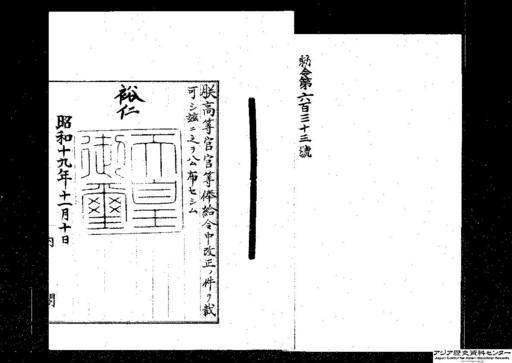 勅令第六百三十三號
朕高等官官等俸給令中改正ノ件ヲ裁
可シ玆ニ之ヲ公布セシム
裕仁
天皇御璽
昭和十九年十一月十日
内閣
アジア歴史資料センター
Japan Center for Asian Historical Records